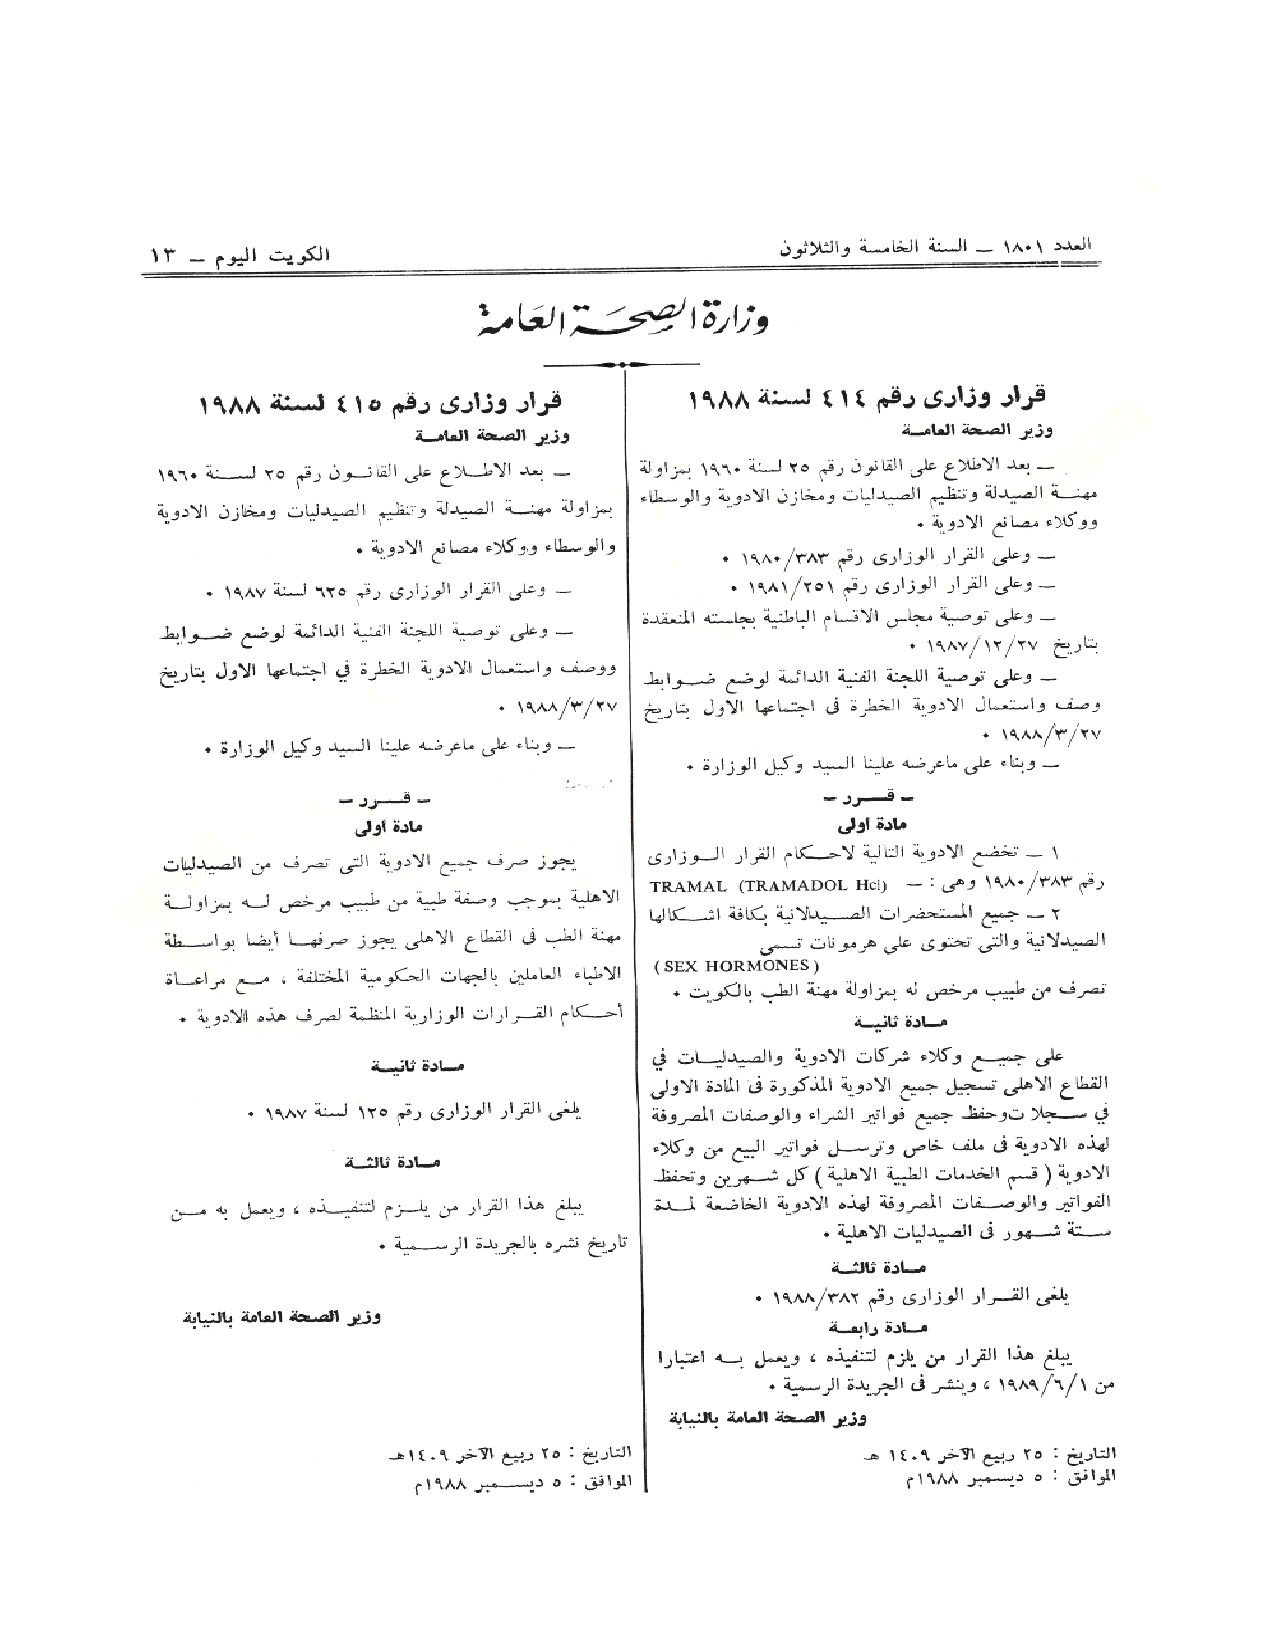 العدد ١٨٠١ ــ السنة الخامسة والثلاثون
الكويت اليوم ــ ١٣
وزارة الصحة العامة
قرار وزارى رقم ٤١٤ لسنة ١٩٨٨
وزير الصحة العامــة
ــ بعد الاطلاع على القانون رقم ٢٥ لسنة ١٩٦٠ بمزاولة
مهنــة الصيدلة وتنظيم الصيدليات ومخازن الادوية والوسطاء
ووكلاء مصانع الادوية ٠
ــ وعلى القرار الوزارى رقم ١٩٨٠/٣٨٣ ٠
ــ وعلى القرار الوزارى رقم ١٩٨١/٢٥١ ٠
ــ وعلى توصية مجلس الاقسام الباطنية بجلسته المنعقدة
بتاريخ ١٩٨٧/١٢/٢٧ ٠
ــ وعلى توصية اللجنة الفنية الدائمة لوضع ضــوابط
وصف واستعمال الادوية الخطرة فى اجتماعها الاول بتاريخ
١٩٨٨/٣/٢٧ ٠
ــ وبناء على ماعرضه علينا السيد وكيل الوزارة ٠
ــ قــــرر ــ
مادة اولى
١ ــ تخضع الادوية التالية لاحــكام القرار الــوزارى
رقم ١٩٨٠/٣٨٣ وهى : ــ TRAMAL (TRAMADOL Hcl)
٢ ــ جميع المستحضرات الصــيدلانية بكافة اشــكالها
الصيدلانية والتى تحتوى على هرمونات تســمى
(SEX HORMONES)
تصرف من طبيب مرخص له بمزاولة مهنة الطب بالكويت ٠
مــادة ثانيــة
على جميــع وكلاء شركات الادوية والصيدليــات فى
القطاع الاهلى تسجيل جميع الادوية المذكورة فى المادة الاولى
فى ســجلات وحفظ جميع فواتير الشراء والوصفات المصروفة
لهذه الادوية فى ملف خاص وترسـل فواتير البيع من وكلاء
الادوية ( قسم الخدمات الطبية الاهلية ) كل شــهرين وتحفظ
الفواتير والوصــفات المصروفة لهذه الادوية الخاضعة لمــدة
ســتة شهور فى الصيدليات الاهلية ٠
مــادة ثالثــة
يلغى القــرار الوزارى رقم ١٩٨٨/٣٨٢ ٠
مــادة رابعــة
يبلغ هذا القرار من يلزم لتنفيذه ، ويعمل بــه اعتبارا
من ١٩٨٩/٦/١ ، وينشر فى الجريدة الرسمية ٠
وزير الصحة العامة بالنيابة
التاريخ : ٢٥ ربيع الآخر ١٤٠٩ هـ
الموافق : ٥ ديســمبر ١٩٨٨م
قرار وزارى رقم ٤١٥ لسنة ١٩٨٨
وزير الصحة العامــة
ــ بعد الاطــلاع على القانــون رقم ٢٥ لســنة ١٩٦٠
بمزاولة مهنــة الصيدلة وتنظيم الصيدليات ومخازن الادوية
والوسطاء ووكلاء مصانع الادوية ٠
ــ وعلى القرار الوزارى رقم ٦٢٥ لسنة ١٩٨٧ ٠
ــ وعلى توصية اللجنة الفنية الدائمة لوضع ضــوابط
ووصف واستعمال الادوية الخطرة فى اجتماعها الاول بتاريخ
١٩٨٨/٣/٢٧ ٠
ــ وبناء على ماعرضه علينا السيد وكيل الوزارة ٠
ــ قــــرر ــ
مادة أولى
يجوز صرف جميع الادوية التى تصرف من الصيدليات
الاهلية بموجب وصفة طبية من طبيب مرخص لــه بمزاولــة
مهنة الطب فى القطاع الاهلى يجوز صرفهــا أيضا بواســطة
الاطباء العاملين بالجهات الحكومية المختلفة ، مــع مراعــاة
أحــكام القــرارات الوزارية المنظمة لصرف هذه الادوية ٠
مــادة ثانيــة
يلغى القرار الوزارى رقم ١٢٥ لسنة ١٩٨٧ ٠
مــادة ثالثــة
يبلغ هذا القرار من يلــزم لتنفيــذه ، ويعمل به مــن
تاريخ نشره بالجريدة الرســمية ٠
وزير الصحة العامة بالنيابة
التاريخ : ٢٥ ربيع الآخر ١٤٠٩هـ
الموافق : ٥ ديســـمبر ١٩٨٨م